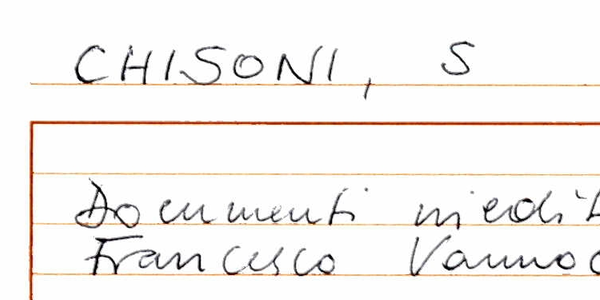 CHISONI, S
Documenti inediti
Francesco Vannoc